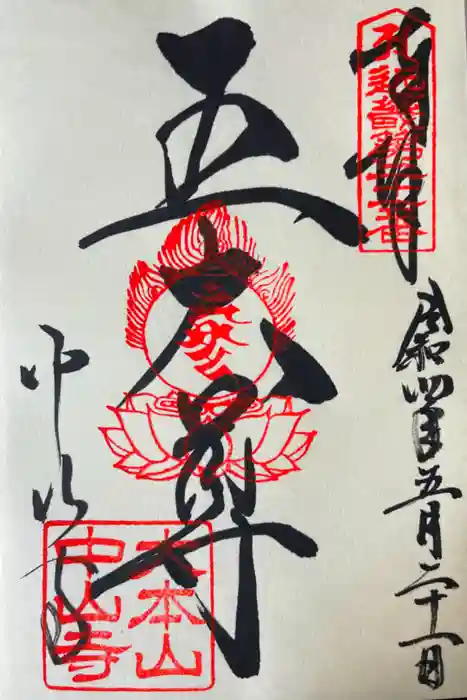 奉拝
五大尊
令和四年五月二十一日
中山寺
大本山
中山寺